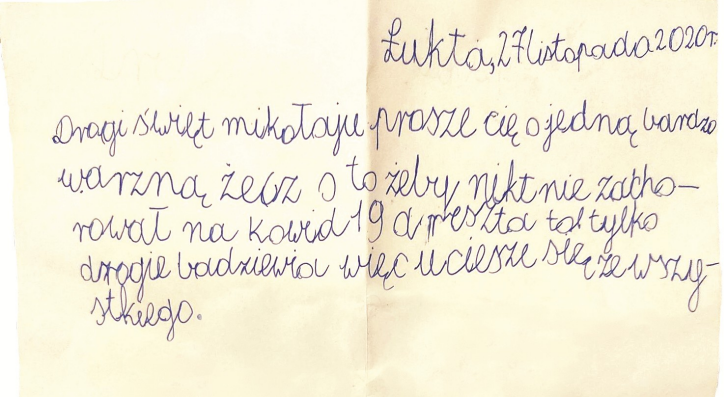 Łukta, 27 listopada 2020r.
Dragi święt mikołaju prosze cię o jedną bardzo
warzną żecz o to żeby nikt nie zacho-
rował na kowid 19 a reszta to tylko
drogie badziewia więc uciesze się ze wszy-
stkiego.